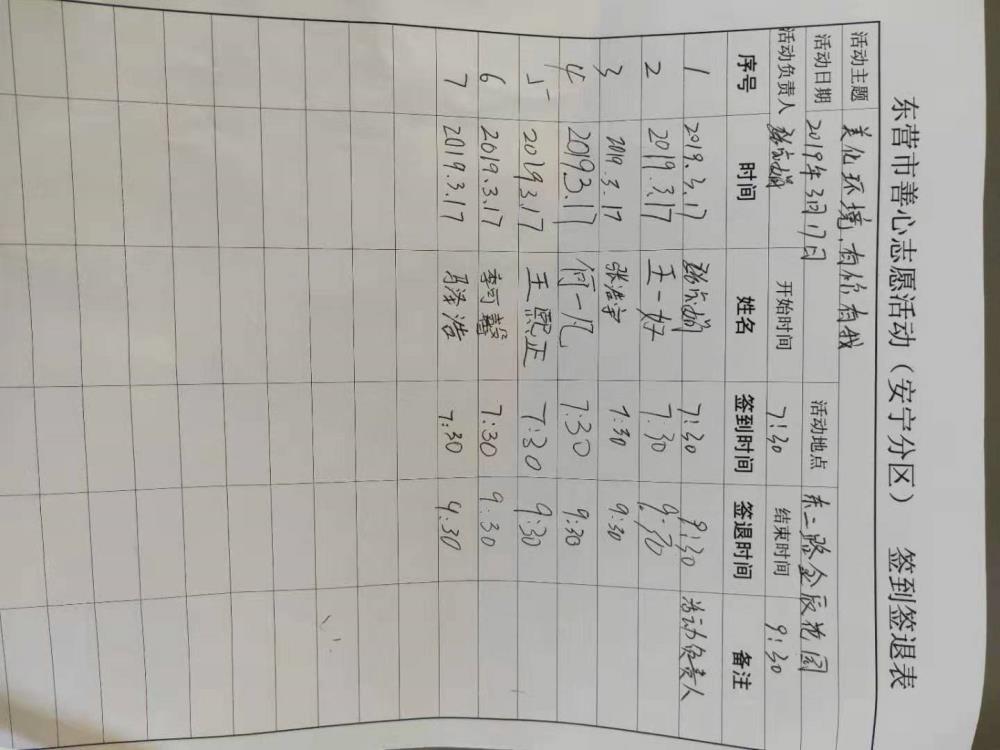 东营市善心志愿活动（安宁分区） 签到签退表
活动主题 美化环境，有你有我
活动日期 2019年3月17日 活动地点 东二路金辰花园
活动负责人 开始时间 7:30 结束时间 9:30
序号 时间 姓名 签到时间 签退时间 备注
1 2019.3.17 7:30 9:30 活动负责人
2 2019.3.17 王一好 7:30 9:30
3 2019.3.17 张浩宇 7:30 9:30
4 2019.3.17 何一凡 7:30 9:30
5 2019.3.17 王熙正 7:30 9:30
6 2019.3.17 李可馨 7:30 9:30
7 2019.3.17 马泽浩 7:30 9:30